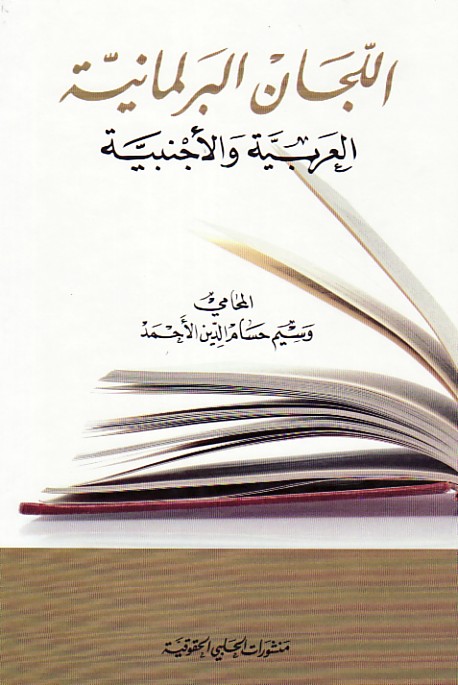 اللّجَانْ البَرلمانيَّة
العَربيَّة وَالأَجْنَبيَّة
المحَامي
وَسِيم حسَام الدّين الأَحمَد
مَنشورَات الحَلبي الحقوقيَّة